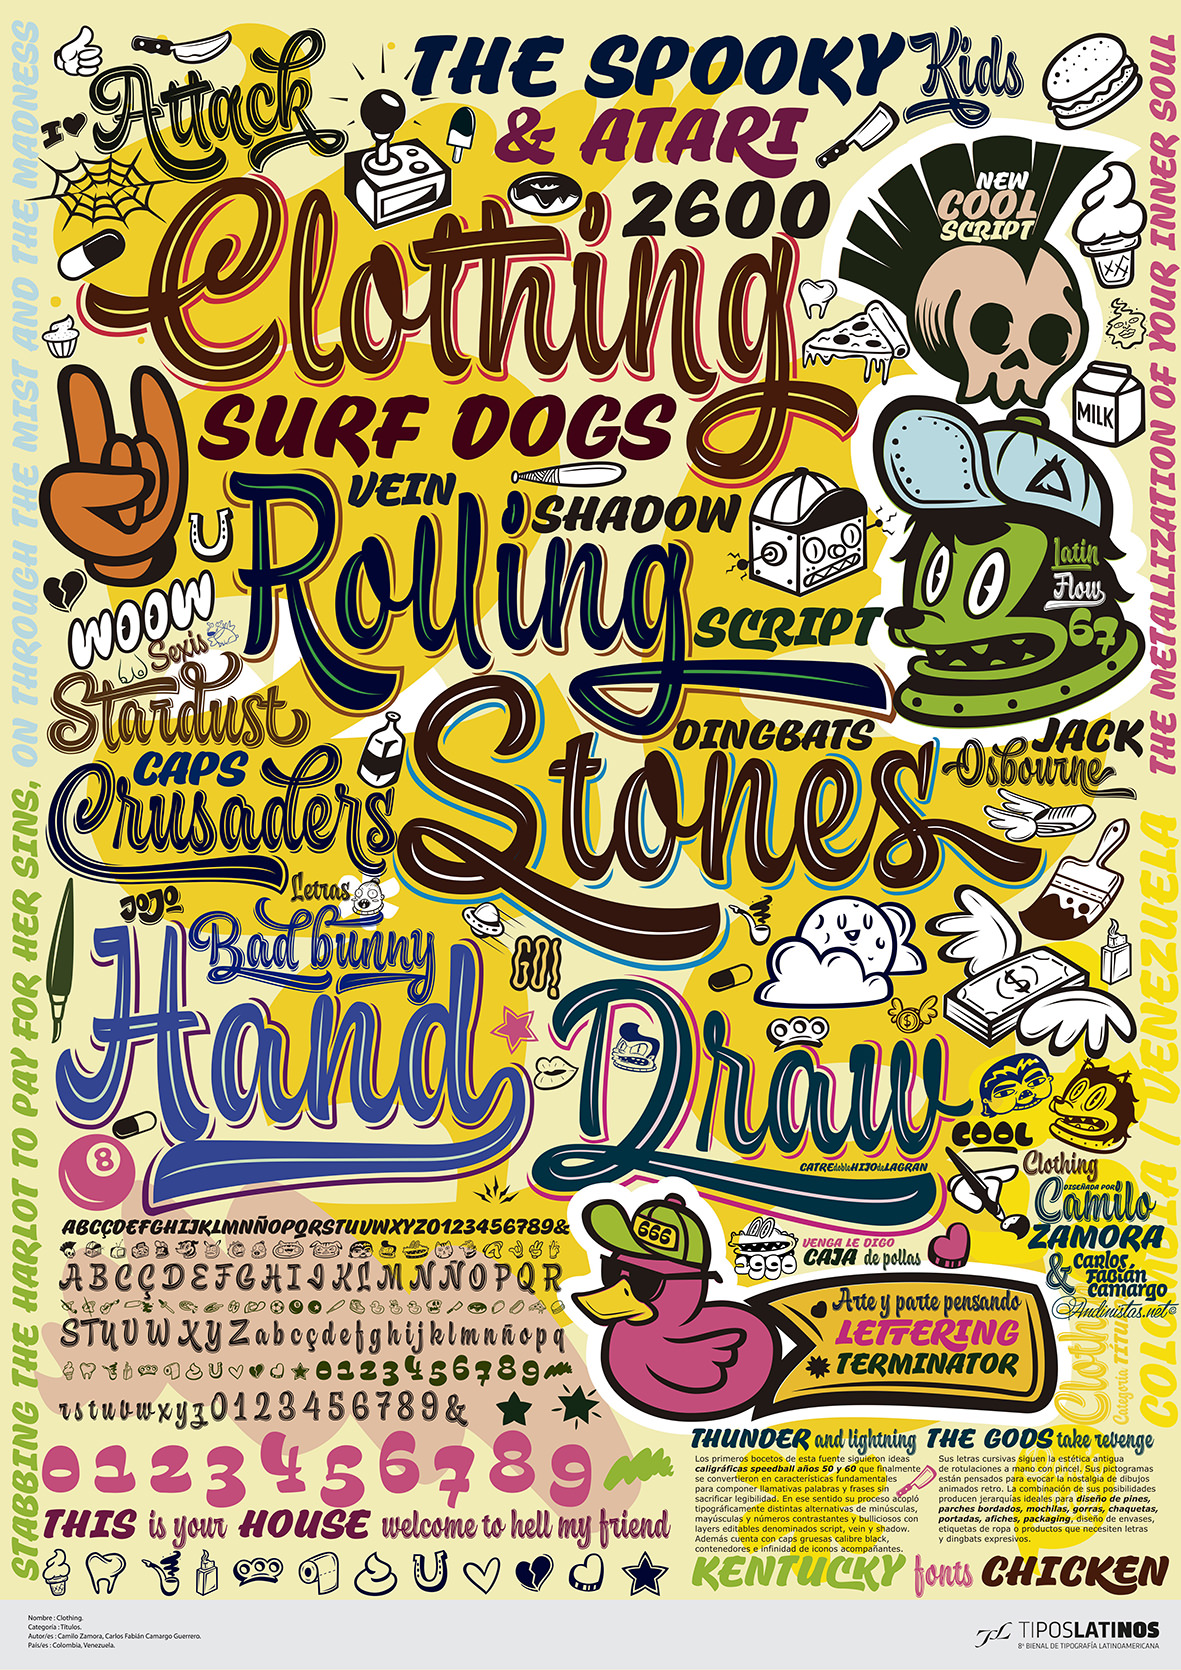 STABBING THE HARLOT TO PAY FOR HER SINS, ON THROUGH THE MIST AND THE MADNESS
I
Attack
THE SPOOKY Kids
& ATARI
2600
NEW
COOL
SCRIPT
Clothing
THE METALLIZATION OF YOUR INNER SOUL
MILK
SURF DOGS
VEIN
Rolling
SHADOW
SCRIPT
Latin
Flow
67
WOOW
Sexis
Stardust
Stones
DINGBATS
JACK
Osbourne
CAPS
Crusaders
JOJO
Letras
Bad bunny
GO!
Hand
Draw
8
COOL
CATREdobleHIJOdeLAGRAN
COLOMBIA / VENEZUELA
Clothing
DISEÑADA POR
Camilo
ZAMORA
& Carlos
Fabián
Camargo
Andinistas.net
Clothing
Categoría TÍTULOS
ABCÇDEFGHIJKLMNÑOPQRSTUVWXYZ0123456789&
ABCÇDEFGHIJKLMNÑOPQR
STUVWXYZabcçdefghijklmnñopq
0123456789
rstuvwxyz0123456789&
0123456789
666
3990
VENGA LE DIGO
CAJA de pollas
Arte y parte pensando
LETTERING
TERMINATOR
THIS is your HOUSE welcome to hell my friend
THUNDER and lightning THE GODS take revenge
Los primeros bocetos de esta fuente siguieron ideas
caligráficas speedball años 50 y 60 que finalmente
se convertieron en características fundamentales
para componer llamativas palabras y frases sin
sacrificar legibilidad. En ese sentido su proceso acopló
tipográficamente distintas alternativas de minúsculas,
mayúsculas y números contrastantes y bulliciosos con
layers editables denominados script, vein y shadow.
Además cuenta con caps gruesas calibre black,
contenedores e infinidad de iconos acompañantes.
Sus letras cursivas siguen la estética antigua
de rotulaciones a mano con pincel. Sus pictogramas
están pensados para evocar la nostalgia de dibujos
animados retro. La combinación de sus posibilidades
producen jerarquías ideales para diseño de pines,
parches bordados, mochilas, gorras, chaquetas,
portadas, afiches, packaging, diseño de envases,
etiquetas de ropa o productos que necesiten letras
y dingbats expresivos.
KENTUCKY fonts CHICKEN
Nombre : Clothing.
Categoría : Títulos.
Autor/es : Camilo Zamora, Carlos Fabián Camargo Guerrero.
País/es : Colombia, Venezuela.
TL TIPOSLATINOS
8ª BIENAL DE TIPOGRAFÍA LATINOAMERICANA